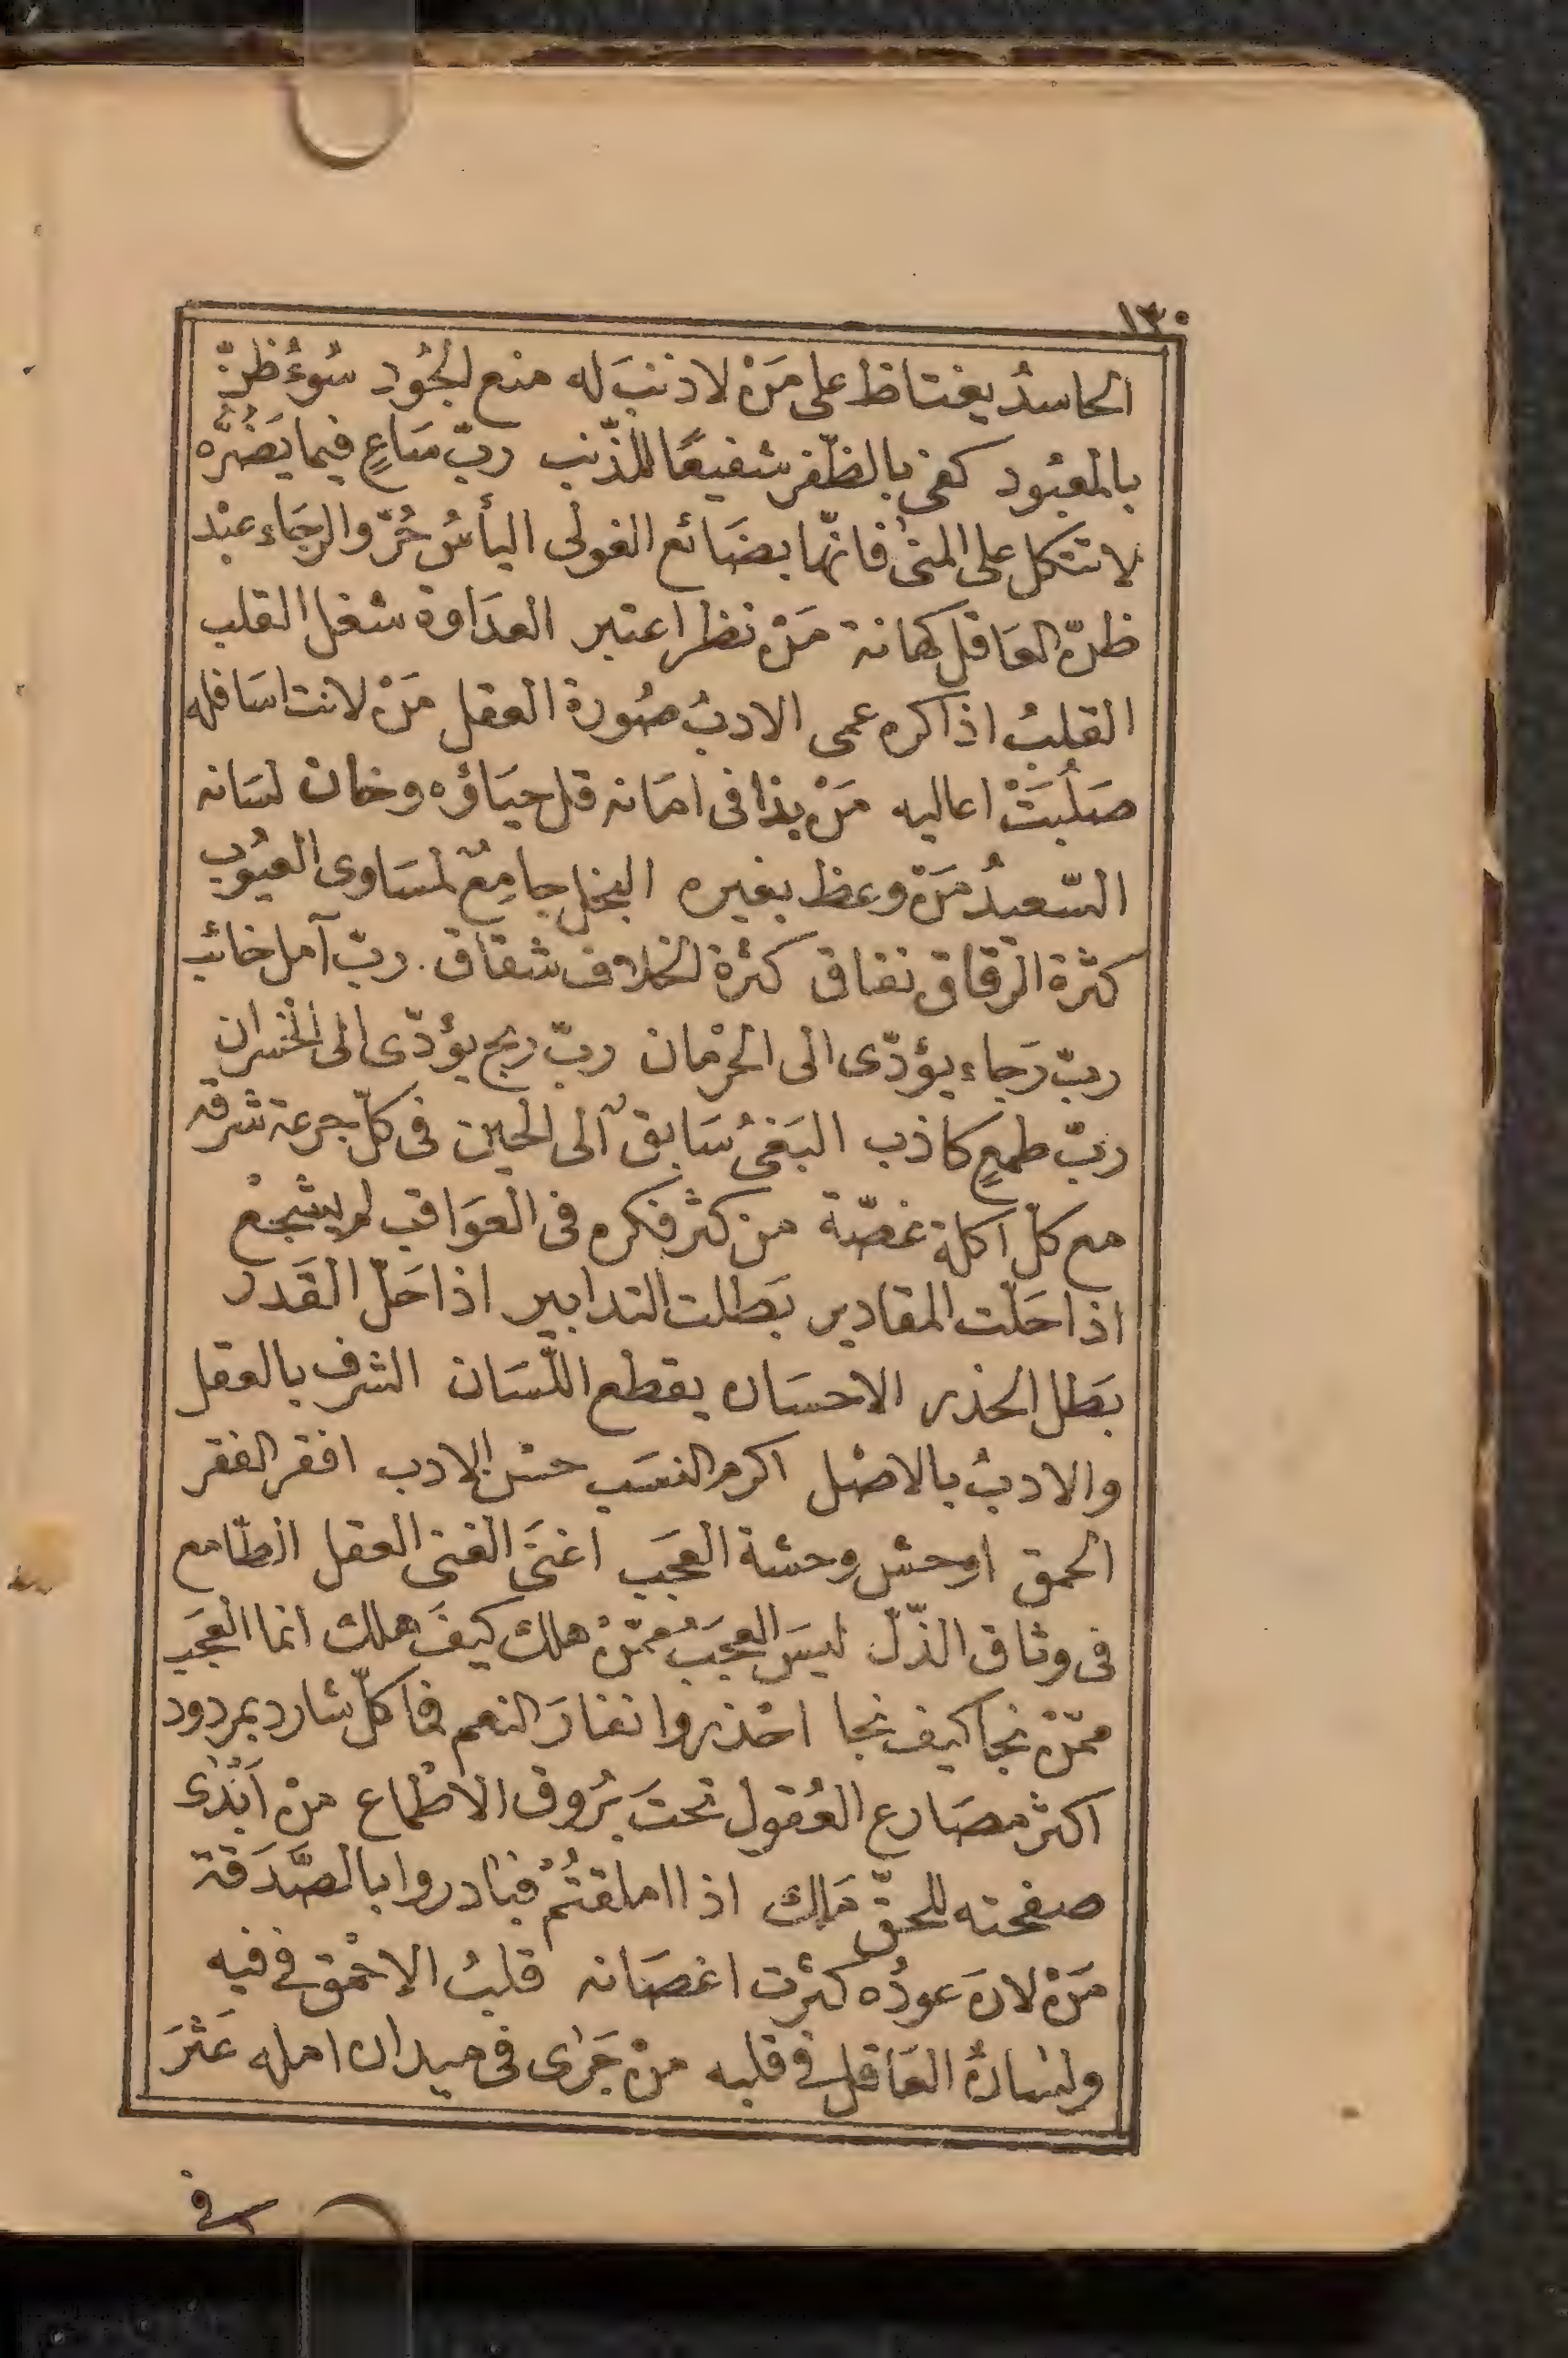 ١٣٠
الحاسدُ يغتاظ على مَنْ لا ذنبَ له منع الجُود سُوءُ ظنّ
بالمعبُود كفى بالظّفر شفيعًا للمذّنب ربّ سَاعٍ فيما يَضُرُّه
لا تتكل على المنى فانّها بضَائع الغولى اليأسُ حُرّ والرجَاء عبْد
ظنّ العَاقل كهانة مَنْ نظر اعتبر العدَاوة شغل القلب
القلبُ اذا كره عمى الادبُ صُورة العقل مَنْ لانت اسَافله
صَلُبَتْ اعاليه مَنْ بذا فى امَانه قل حيَاؤه وخان لسَانه
السّعيدُ مَنْ وعظ بغيره البخل جامِعٌ لمسَاوى العيُوب
كثرة الرقاق نفاق كثرة الخلاف شقاق. ربّ آمل خائب
ربّ رَجاء يؤدّى الى الحرْمان ربّ ربح يؤدّى الى الخسران
ربّ طمعٍ كاذب البَغىُ سَابقٌ الى الحين فى كلّ جرعة شرقه
مع كلّ اكلة غصّة من كثر فكره فى العوَاقب لم يشجعْ
اذا حَلّت المقادير بَطلت التدابير اذا حَلّ القَدر
بَطل الحذر الاحسَان يقطع اللّسَان الشرف بالعقل
والادبُ بالاصْل اكرم النسَب حسْن الادب افقر الفقر
الحمق اوحش وحشة العجَب اغنَى الغنى العقل الطّامع
فى وثاق الذّلّ ليسَ العجَبُ ممّنْ هلك كيفَ هلك انما العجَب
ممّنْ نجا كيف نجا احْذروا نفارَ النعم فما كلّ شارد بمردود
اكثر مصَارع العُقول تحتَ بُرُوق الاطْماع منْ اَبْدٰى
صفحته للحقّ هَلك اذا املقتُمْ فبَادروا بالصَّدَقة
مَنْ لانَ عودُه كثرت اغصَانه قلبُ الاحْمق فى فيه
ولسَانُ العَاقل فى قلبه منْ جَرٰى فى ميدان امله عَثرَ
فى